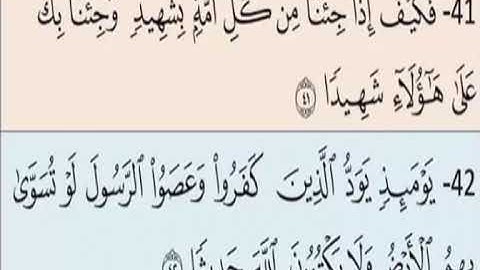 41- فَكَيْفَ إِذَا جِئْنَا مِن كُلِّ أُمَّةٍۭ بِشَهِيدٍۢ وَجِئْنَا بِكَ
عَلَىٰ هَٰٓؤُلَآءِ شَهِيدًا ﴿٤١﴾
42- يَوْمَئِذٍۢ يَوَدُّ ٱلَّذِينَ كَفَرُوا۟ وَعَصَوُا۟ ٱلرَّسُولَ لَوْ تُسَوَّىٰ
بِهِمُ ٱلْأَرْضُ وَلَا يَكْتُمُونَ ٱللَّهَ حَدِيثًا ﴿٤٢﴾